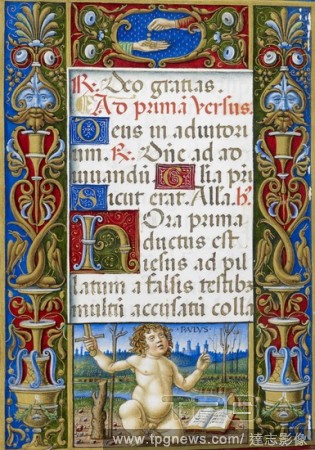 R. Deo gratias.
Ad prima versus.
Deus in adiutori
um. R. Dñe ad ad
iuuandū. Glia pri
Sicut erat. Alla. h
Hora prima
ductus est
iesus ad pil
latum a falsis testibz
multi accusati colla
PAVLVS
www.tpgnews.com/ 達志影像